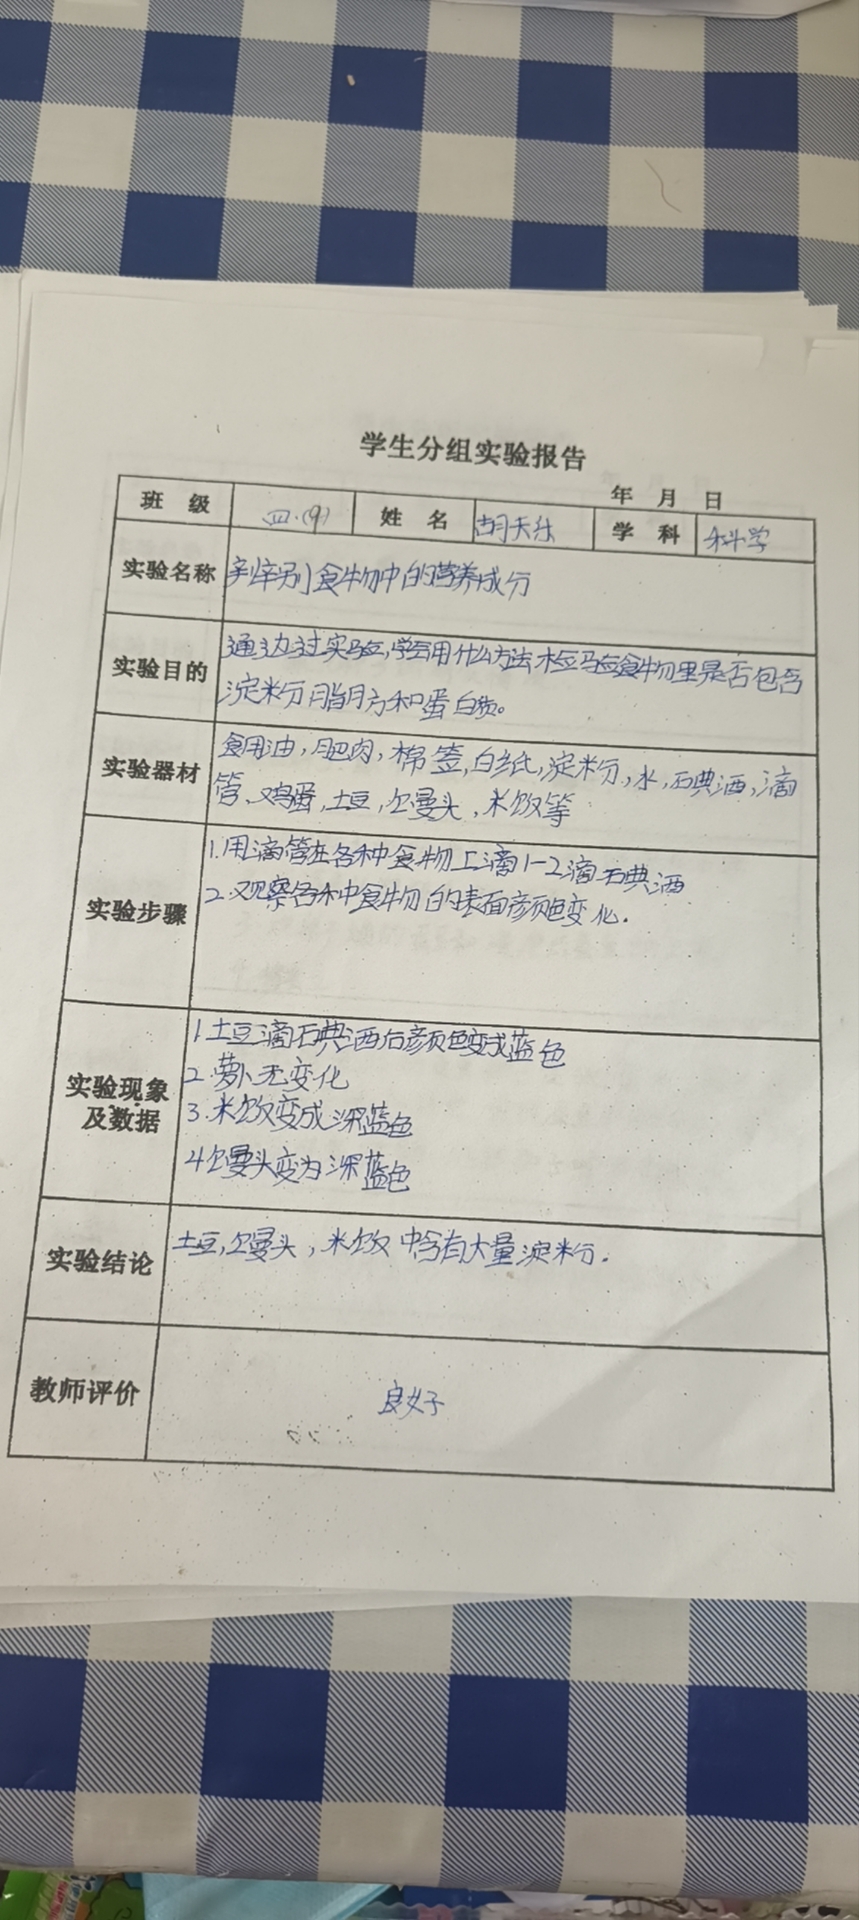 学生分组实验报告
年 月 日
班 级 四.(9) 姓 名 胡天乐 学 科 科学
实验名称 辨别食物中的营养成分
实验目的 通过实验,学会用什么方法检验食物里是否包含
淀粉脂肪和蛋白质。
实验器材 食用油,肥肉,棉签,白纸,淀粉,水,石典酒,滴
管、鸡蛋,土豆,馒头,米饭等
实验步骤 1.用滴管在各种食物上滴1-2滴石典酒
2.观察各种食物的表面颜色变化.
实验现象
及数据
1.土豆滴石典酒后颜色变成蓝色
2.萝卜无变化
3.米饭变成深蓝色
4.馒头变为深蓝色
实验结论 土豆,馒头,米饭中含有大量淀粉.
教师评价 良好